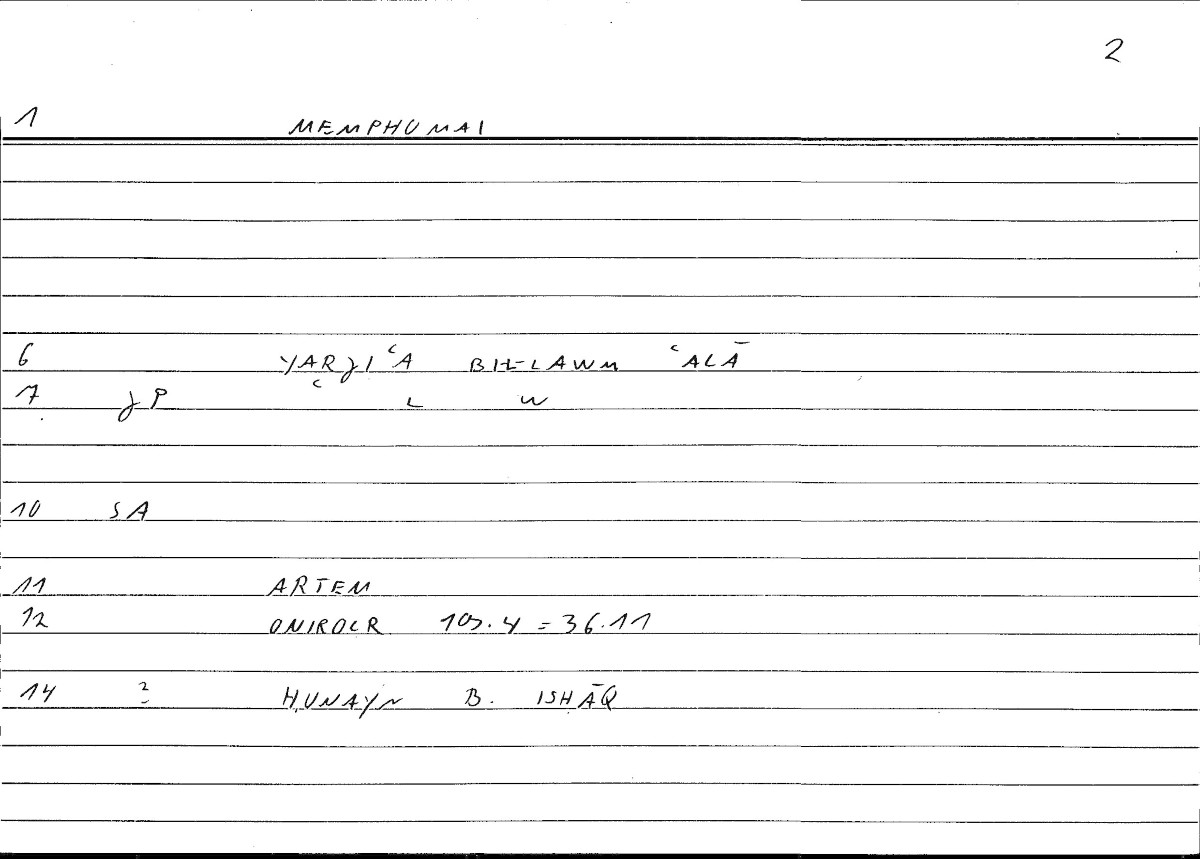 2
1 MEMPHOMAI
6 YARJIʿA BIL-LAWM ʿALĀ
7 JP ʿ L W
10 SA
11 ARTEM
12 ONIROCR 109.4 = 36.11
14 ? ḤUNAYN B. ISḤĀQ